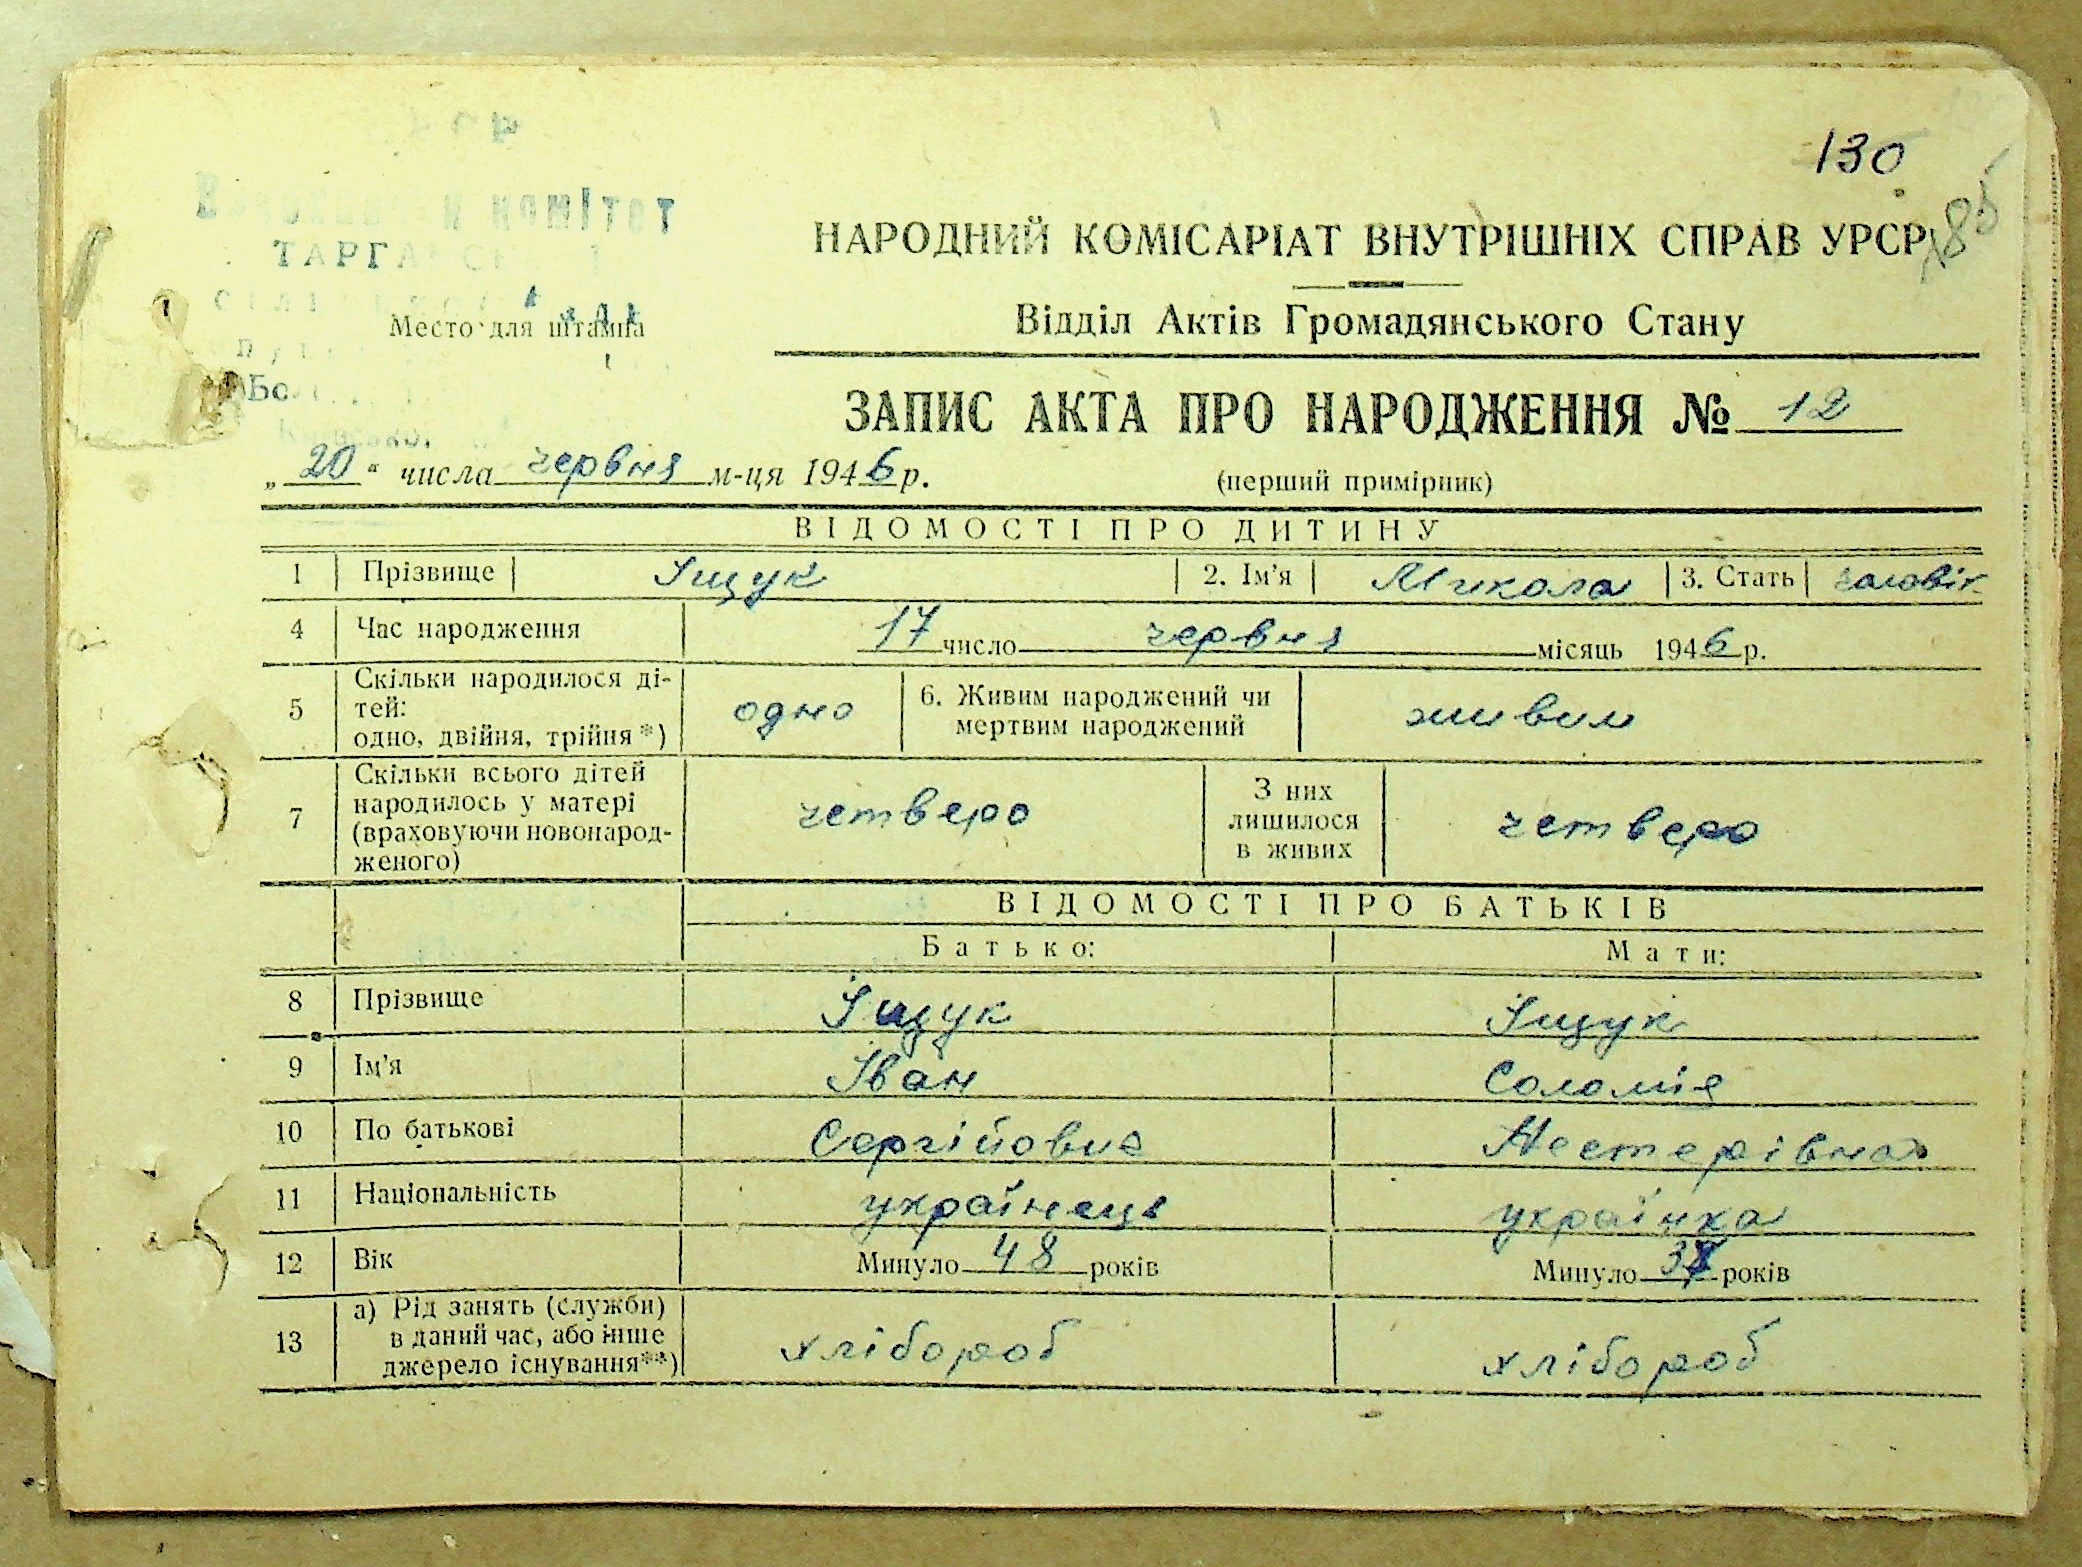 130
185
комітет
НАРОДНИЙ КОМІСАРІАТ ВНУТРІШНІХ СПРАВ УРСР
Відділ Актів Громадянського Стану
Место для штампа
ЗАПИС АКТА ПРО НАРОДЖЕННЯ № 12
„20“ числа червня м-ця 1946 р. (перший примірник)
ВІДОМОСТІ ПРО ДИТИНУ
1 Прізвище Іщук 2. Ім'я Микола 3. Стать чоловіч.
4 Час народження 17 число червня місяць 1946 р.
5 Скільки народилося ді-
тей:
одно, двійня, трійня*) одно 6. Живим народжений чи
мертвим народжений живим
7 Скільки всього дітей
народилось у матері
(враховуючи новонарод-
женого) четверо З них
лишилося
в живих четверо
ВІДОМОСТІ ПРО БАТЬКІВ
Батько: Мати:
8 Прізвище Іщук Іщук
9 Ім'я Іван Соломія
10 По батькові Сергійович Нестерівна
11 Національність українець українка
12 Вік Минуло 48 років Минуло років
13 а) Рід занять (служби)
в даний час, або інше
джерело існування**) хлібороб хлібороб